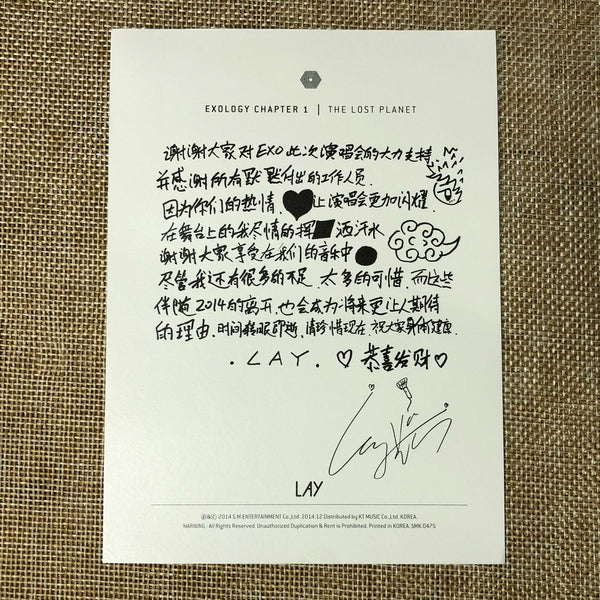 EXOLOGY CHAPTER 1 | THE LOST PLANET
谢谢大家对EXO此次演唱会的大力支持
并感谢所有默默付出的工作人员.
因为你们的热情.让演唱会更加闪耀.
在舞台上的我尽情的挥洒汗水
谢谢大家享受在我们的音乐中
尽管我还有很多的不足.太多的可惜.而这些
伴随2014的离开.也会成为将来更让人期待
的理由.时间转眼即逝.请珍惜现在.祝大家身体健康.
.LAY. ♡恭喜发财♡
Lay
LAY
℗&© 2014 S.M.ENTERTAINMENT Co.,Ltd. 2014.12 Distributed by KT MUSIC Co.,Ltd. KOREA.
WARNING : All Rights Reserved. Unauthorized Duplication & Rent is Prohibited. Printed in KOREA. SMK 0475